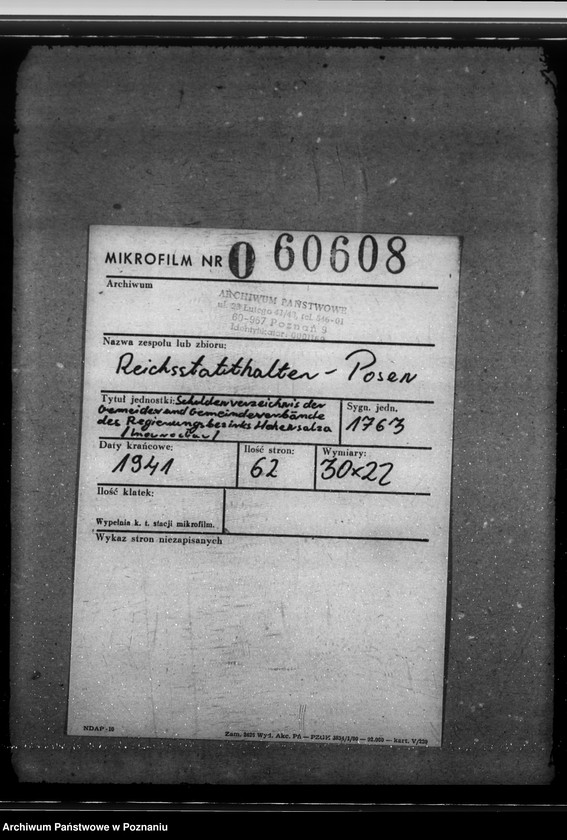 MIKROFILM NR 0 60608
Archiwum
ARCHIWUM PAŃSTWOWE
ul. 23 Lutego 41/43, tel. 546-01
60-967 Poznań 9
Identyfikator
Nazwa zespołu lub zbioru:
Reichsstatthalter - Posen
Tytuł jednostki: Schuldenverzeichnis der
Gemeiden und Gemeindeverbände
des Regierungsbezirks Hohensalza
/Inowrocław/
Sygn. jedn.
1763
Daty krańcowe:
1941
Ilość stron:
62
Wymiary:
30x22
Ilość klatek:
Wypełnia k. t. stacji mikrofilm.
Wykaz stron niezapisanych
NDAP-10
Zam. Wyd. Akc. PA — PZGK — kart. V/
Archiwum Państwowe w Poznaniu